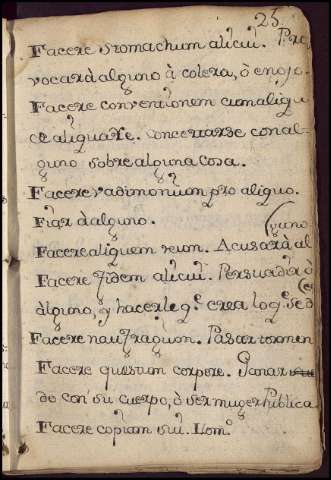 25.
Facere stomachum alicui. Pro
vocar à alguno à colera, ò enojo.
Facere conventionem cum aliqu
e aliqua re. Concertarse con al-
guno sobre alguna cosa.
Facere vadimonium pro aliquo.
Fiar à alguno.
Facere aliquem reum. Acusar à al
(guno
Facere fidem alicui. Persuadir ò
àlguno, y hacerle q.e crea lo q.e se d
Facere naufragium. Pasar tormen
Facere questum corpore. Ganar
do con su cuerpo, ò ser muger Publica
Facere copiam sui. Lom.o